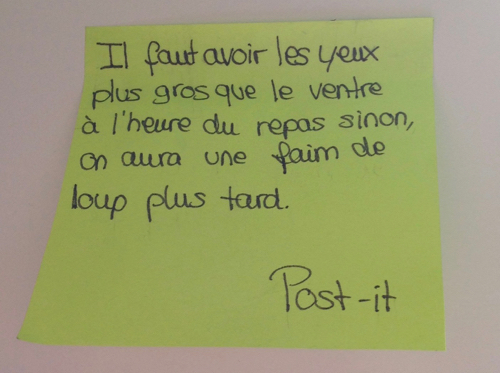 Il faut avoir les yeux
plus gros que le ventre
à l'heure du repas sinon,
on aura une faim de
loup plus tard.
Post-it